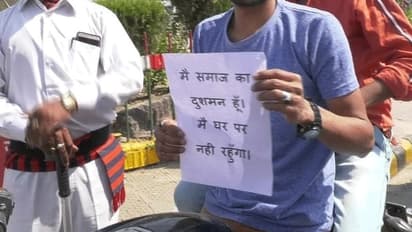 मै समाज का
दुशमन हूँ।
मै घर पर
नही रहुँगा।